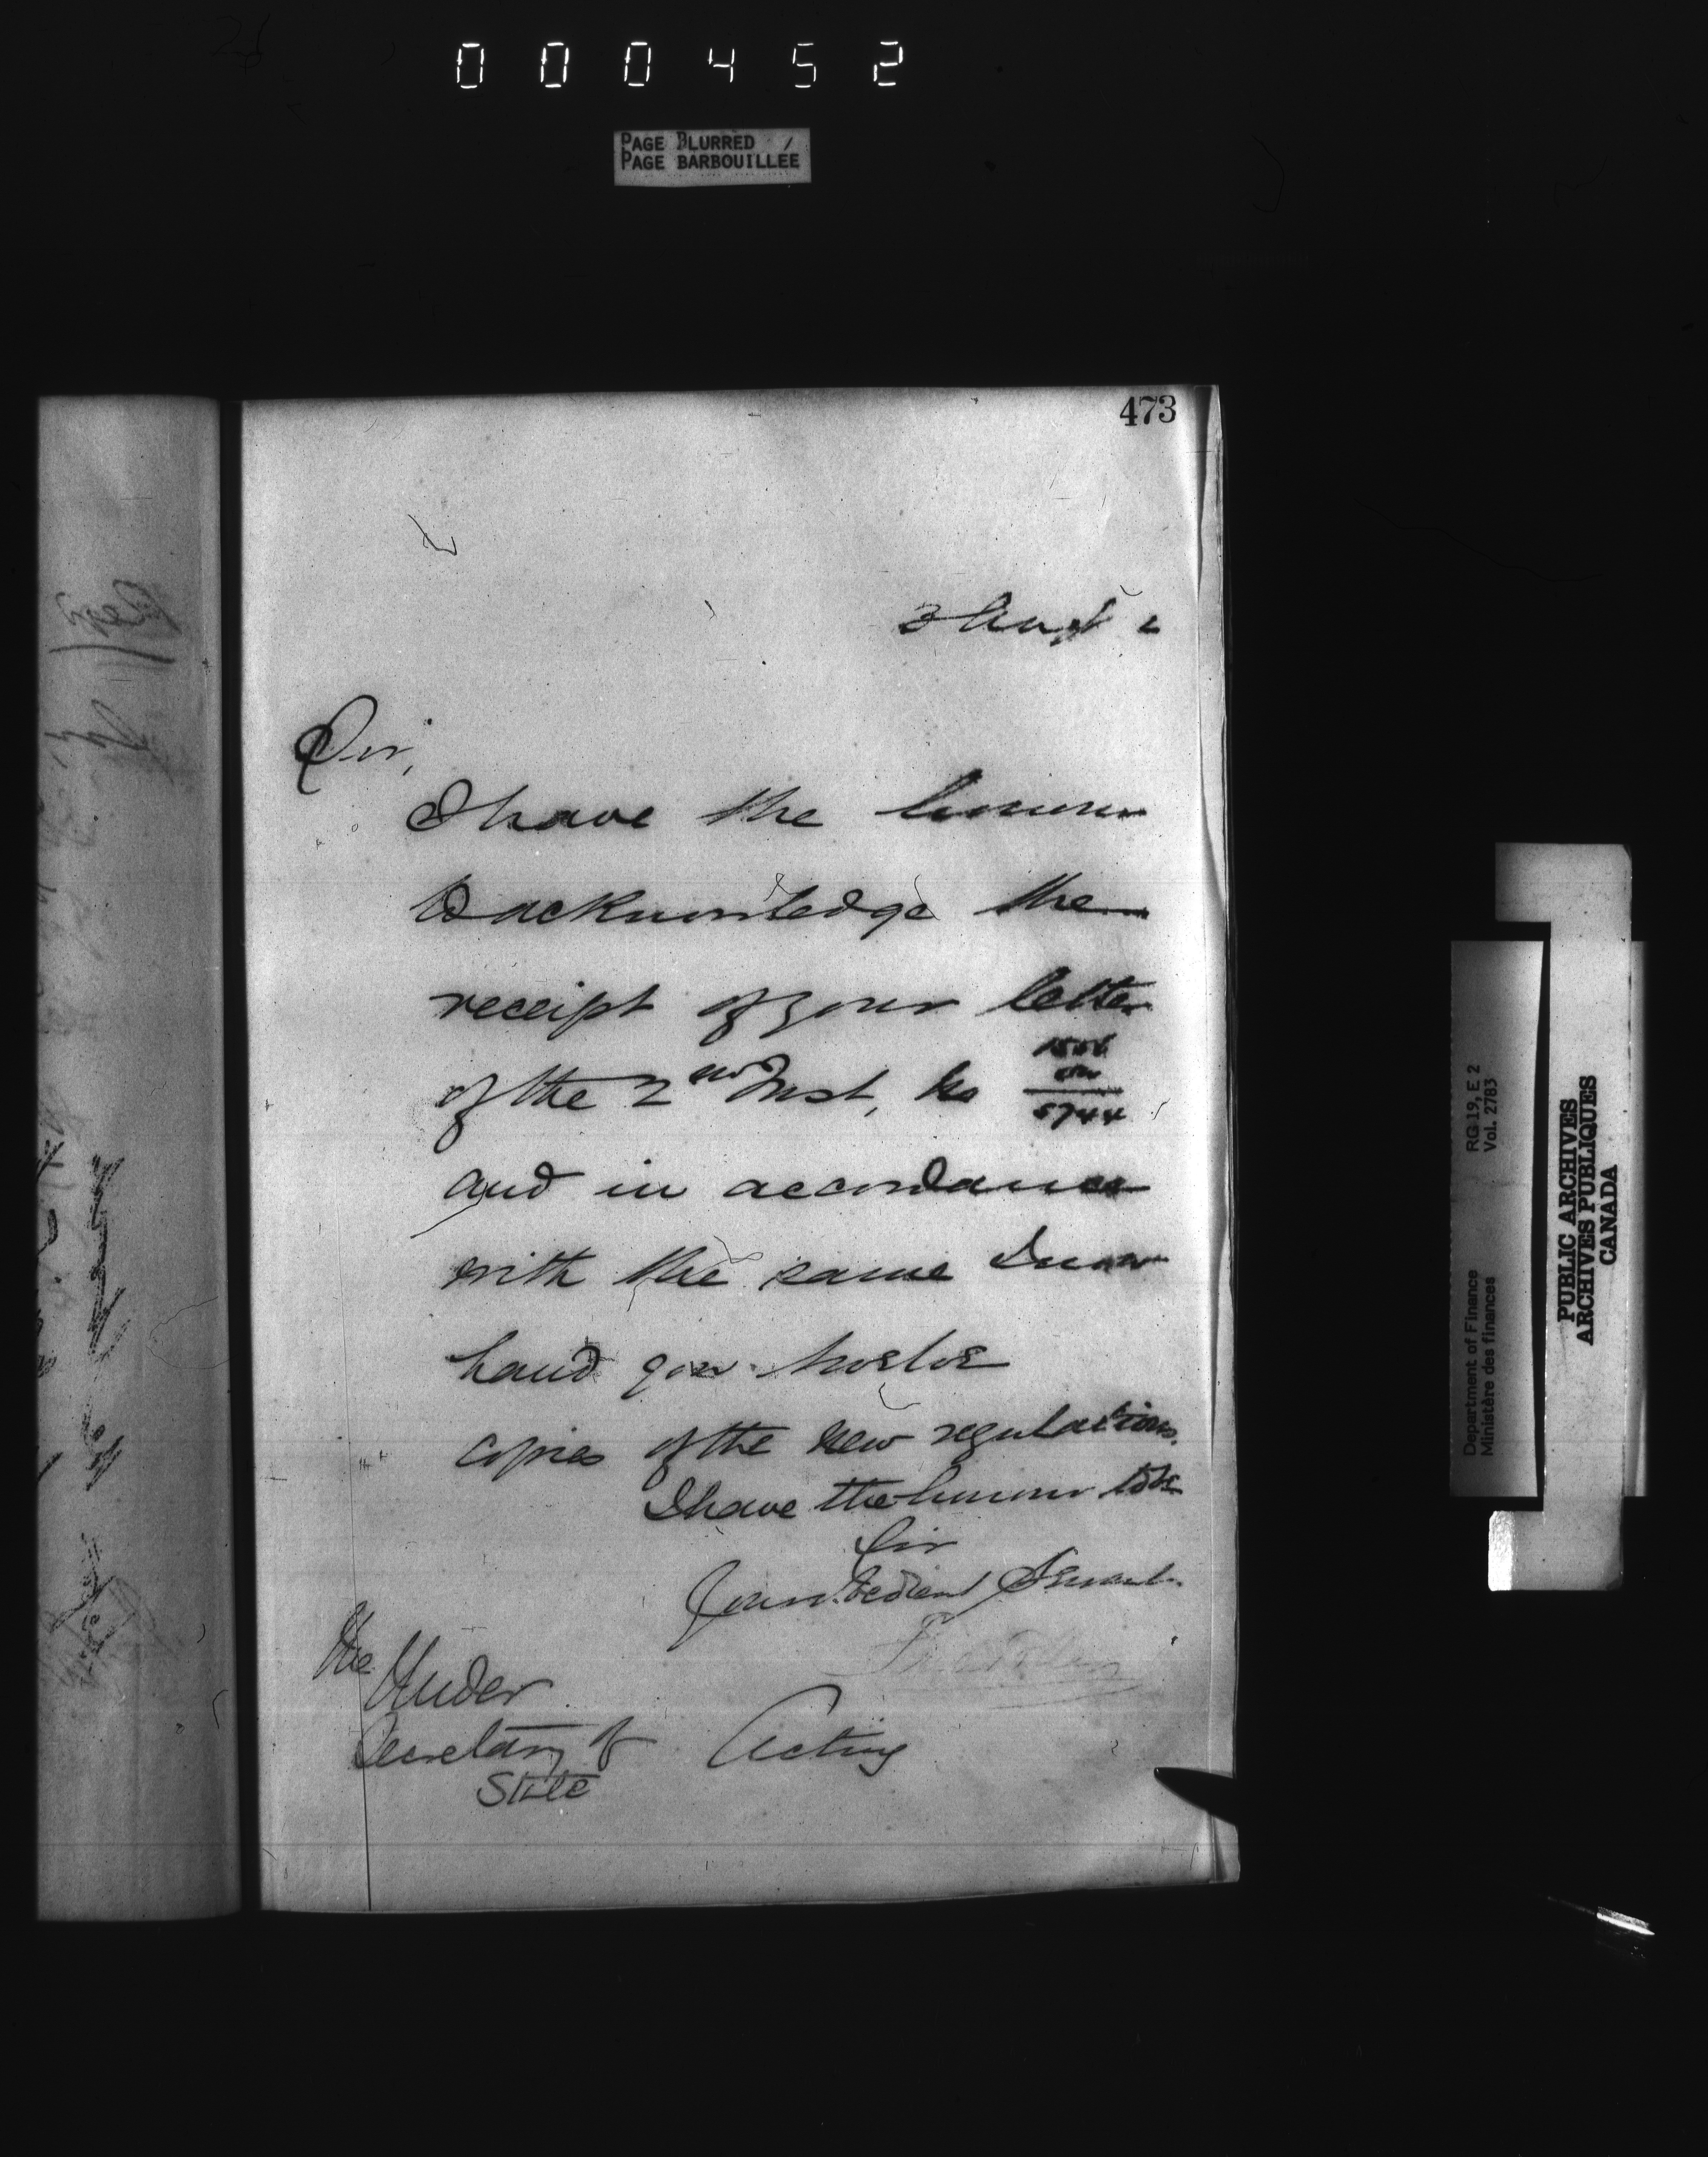 000452
PAGE BLURRED
PAGE BARBOUILLÉE
473
3 Augt 2
Sir,
I have the honour
to acknowledge the
receipt of your letter
of the 2nd Inst, No
5744
and in accordance
with the same I now
hand you twelve
copies of the new regulations.
I have the honour to be
Sir
Your obedient Servant
The Under
Secretary of
State
Acting
Department of Finance
Ministère des finances
RG 19, E 2
Vol. 2783
PUBLIC ARCHIVES
ARCHIVES PUBLIQUES
CANADA